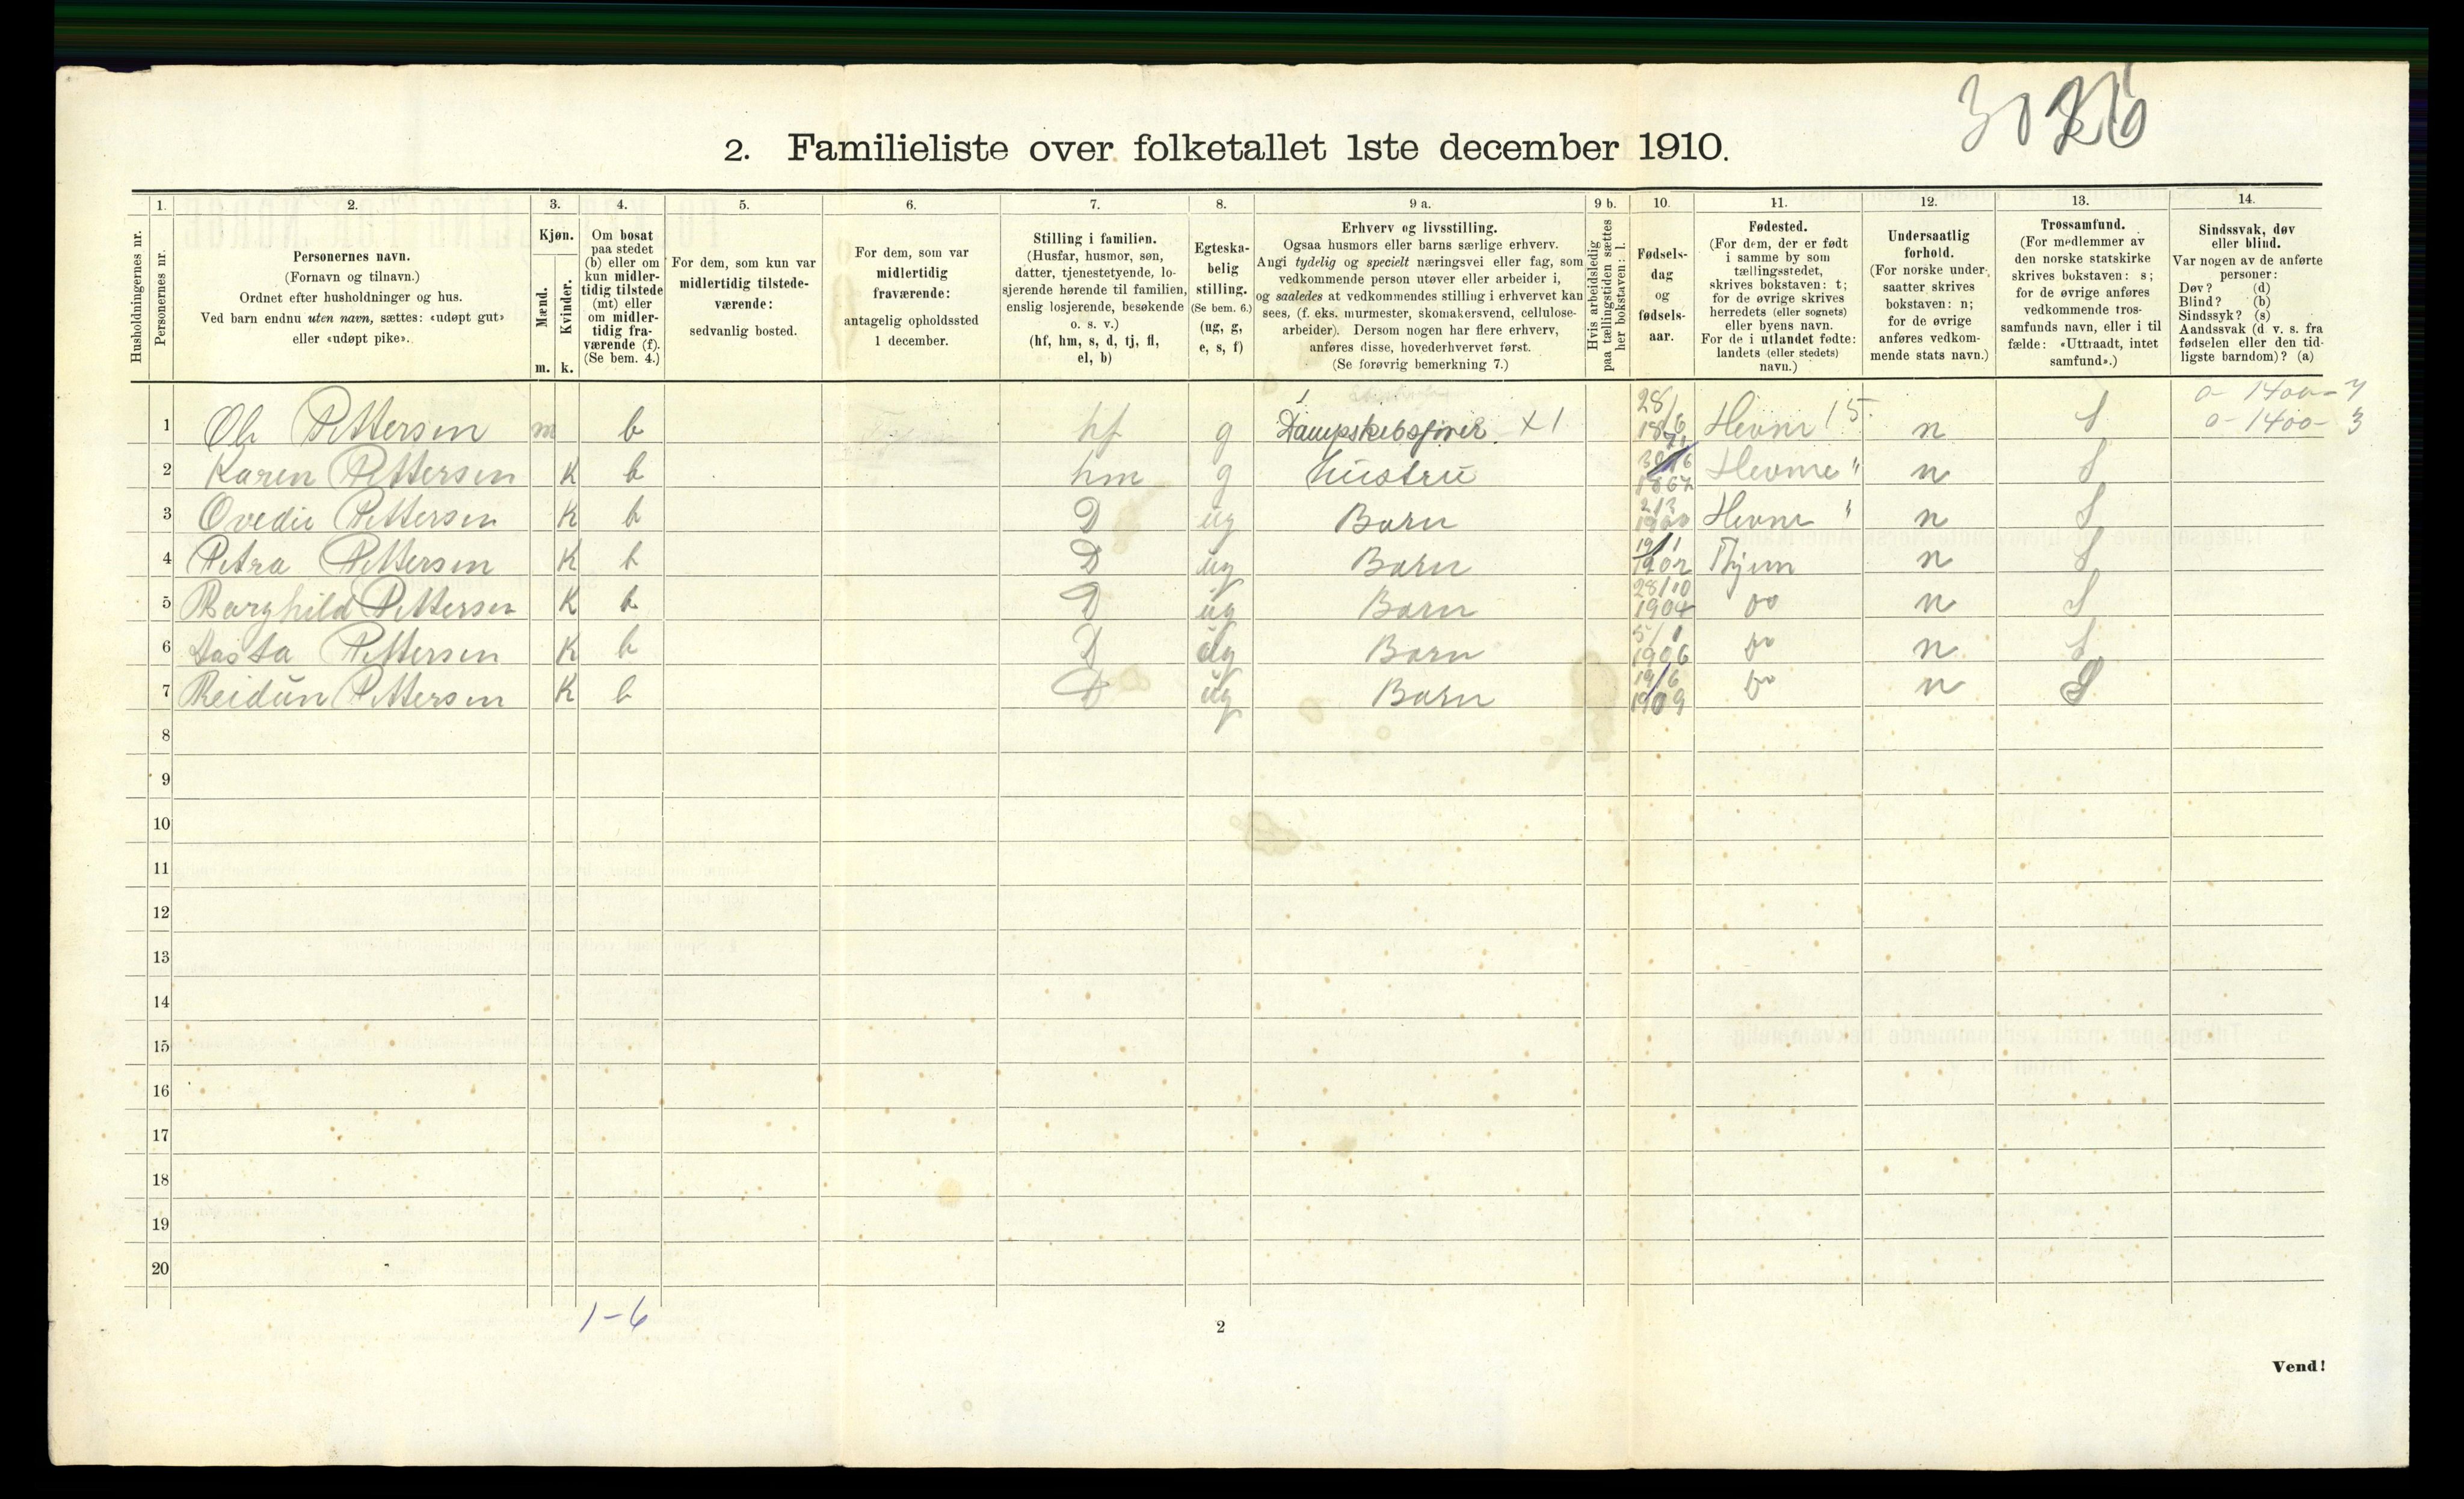 2. Familieliste over folketallet 1ste december 1910.
Husholdningernes nr.
1.
Personernes nr.
2.
Personernes navn.
(Fornavn og tilnavn.)
Ordnet efter husholdninger og hus.
Ved barn endnu uten navn, sættes: «udøpt gut»
eller «udøpt pike».
3.
Kjøn.
Mænd.
Kvinder.
m. k.
4.
Om bosat
paa stedet
(b) eller om
kun midler-
tidig tilstede
(mt) eller
om midler-
tidig fra-
værende (f).
(Se bem. 4.)
5.
For dem, som kun var
midlertidig tilstede-
værende:
sedvanlig bosted.
6.
For dem, som var
midlertidig
fraværende:
antagelig opholdssted
1 december.
7.
Stilling i familien.
(Husfar, husmor, søn,
datter, tjenestetyende, lo-
sjerende hørende til familien,
enslig losjerende, besøkende
o. s. v.)
(hf, hm, s, d, tj, fl,
el, b)
8.
Egteska-
belig
stilling.
(Se bem. 6.)
(ug, g,
e, s, f)
9 a.
Erhverv og livsstilling.
Ogsaa husmors eller barns særlige erhverv.
Angi tydelig og specielt næringsvei eller fag, som
vedkommende person utøver eller arbeider i,
og saaledes at vedkommendes stilling i erhvervet kan
sees, (f. eks. murmester, skomakersvend, cellulose-
arbeider). Dersom nogen har flere erhverv,
anføres disse, hovederhvervet først.
(Se forøvrig bemerkning 7.)
9 b.
Hvis arbeidsledig
paa tællingstiden sættes
her bokstaven: l.
10.
Fødsels-
dag
og
fødsels-
aar.
11.
Fødested.
(For dem, der er født
i samme by som
tællingsstedet,
skrives bokstaven: t;
for de øvrige skrives
herredets (eller sognets)
eller byens navn.
For de i utlandet fødte:
landets (eller stedets)
navn.)
12.
Undersaatlig
forhold.
(For norske under-
saatter skrives
bokstaven: n;
for de øvrige
anføres vedkom-
mende stats navn.)
13.
Trossamfund.
(For medlemmer av
den norske statskirke
skrives bokstaven: s;
for de øvrige anføres
vedkommende tros-
samfunds navn, eller i til
fælde: «Uttraadt, intet
samfund».)
14.
Sindssvak, døv
eller blind.
Var nogen av de anførte
personer:
Døv? (d)
Blind? (b)
Sindssyk? (s)
Aandssvak (d. v. s. fra
fødselen eller den tid-
ligste barndom)? (a)
0 - 1400 - 4
1 Ole Pettersen m b hf g x 1 28/6 1871 Hevne 15. n S 0 - 1400 - 3
2 Karen Pettersen K b hm g Hustru 1867 Hevne " n S
3 Ovedie Pettersen K b D ug Barn 2/3 1900 Hevne " n S
4 Petra Pettersen K b D ug Barn 19/1 1902 n S
5 Borghild Pettersen K b D ug Barn 28/10 1904 do n S
6 Pettersen K b D ug Barn 5/1 1906 do n S
7 Reidun Pettersen K b D ug Barn 19/6 1909 do n S
8
9
10
11
12
13
14
15
16
17
18
19
20
1-6
2
Vend!